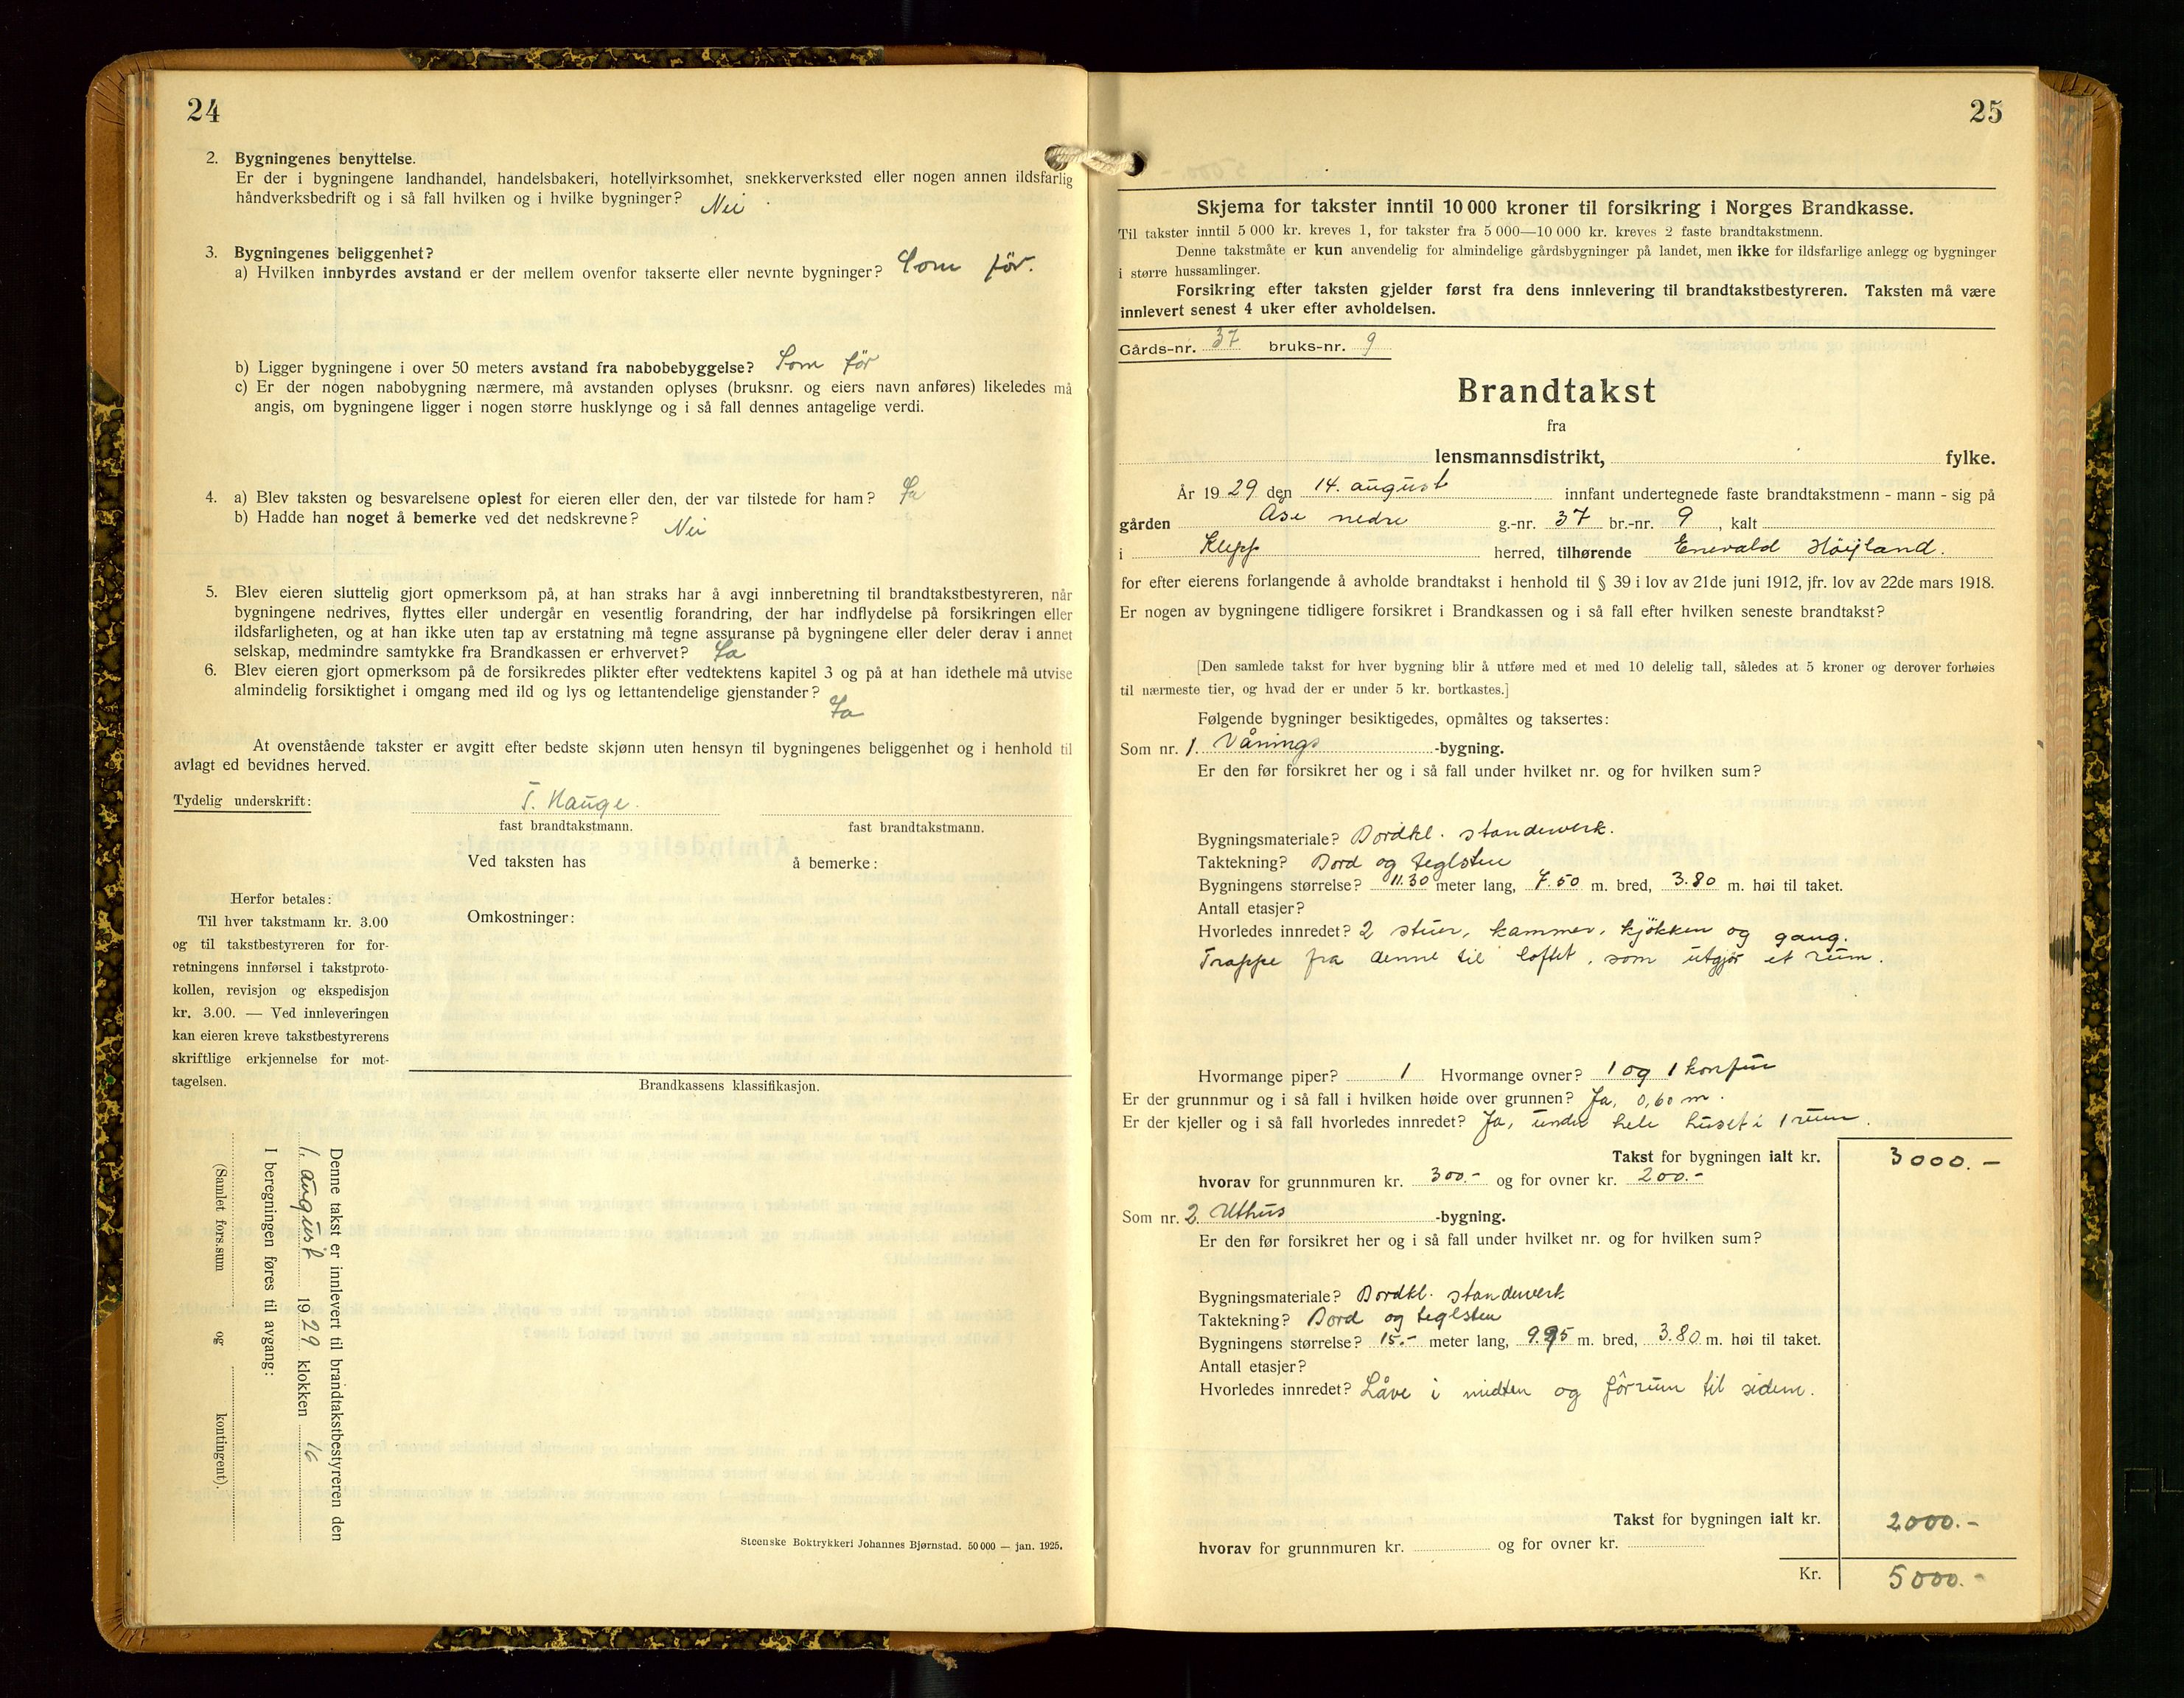 24
2. Bygningenes benyttelse.
Er der i bygningene landhandel, handelsbakeri, hotellvirksomhet, snekkerverksted eller nogen annen ildsfarlig
håndverksbedrift og i så fall hvilken og i hvilke bygninger? Nei
3. Bygningenes beliggenhet?
a) Hvilken innbyrdes avstand er der mellem ovenfor takserte eller nevnte bygninger? Som før.
b) Ligger bygningene i over 50 meters avstand fra nabobebyggelse? Som før
c) Er der nogen nabobygning nærmere, må avstanden oplyses (bruksnr. og eiers navn anføres) likeledes må
angis, om bygningene ligger i nogen større husklynge og i så fall dennes antagelige verdi.
4. a) Blev taksten og besvarelsene oplest for eieren eller den, der var tilstede for ham? Ja
b) Hadde han noget å bemerke ved det nedskrevne? Nei
5. Blev eieren sluttelig gjort opmerksom på, at han straks har å avgi innberetning til brandtakstbestyreren, når
bygningene nedrives, flyttes eller undergår en vesentlig forandring, der har indflydelse på forsikringen eller
ildsfarligheten, og at han ikke uten tap av erstatning må tegne assuranse på bygningene eller deler derav i annet
selskap, medmindre samtykke fra Brandkassen er erhvervet? Ja
6. Blev eieren gjort opmerksom på de forsikredes plikter efter vedtektens kapitel 3 og på at han idethele må utvise
almindelig forsiktighet i omgang med ild og lys og lettantendelige gjenstander? Ja
At ovenstående takster er avgitt efter bedste skjønn uten hensyn til bygningenes beliggenhet og i henhold til
avlagt ed bevidnes herved.
Tydelig underskrift: T. Hauge.
fast brandtakstmann. fast brandtakstmann.
Ved taksten has å bemerke:
Herfor betales:
Til hver takstmann kr. 3.00
og til takstbestyreren for for-
retningens innførsel i takstproto-
kollen, revisjon og ekspedisjon
kr. 3.00. — Ved innleveringen
kan eieren kreve takstbestyrerens
skriftlige erkjennelse for mot-
tagelsen.
Omkostninger:
Brandkassens klassifikasjon.
Denne takst er innlevert til brandtakstbestyreren den
1. august 1929 klokken 16
I beregningen føres til avgang:
(Samlet fors.sum og kontingent).
Steenske Boktrykkeri Johannes Bjørnstad. 50 000 — jan. 1925.
25
Skjema for takster inntil 10 000 kroner til forsikring i Norges Brandkasse.
Til takster inntil 5 000 kr. kreves 1, for takster fra 5 000—10 000 kr. kreves 2 faste brandtakstmenn.
Denne takstmåte er kun anvendelig for almindelige gårdsbygninger på landet, men ikke for ildsfarlige anlegg og bygninger
i større hussamlinger.
Forsikring efter taksten gjelder først fra dens innlevering til brandtakstbestyreren. Taksten må være
innlevert senest 4 uker efter avholdelsen.
Gårds-nr. 37 bruks-nr. 9
Brandtakst
fra
lensmannsdistrikt, fylke.
År 1929 den 14. august innfant undertegnede faste brandtakstmenn - mann - sig på
gården Åse nedre g.-nr. 37 br.-nr. 9, kalt
i Klepp herred, tilhørende Enevald Höijland.
for efter eierens forlangende å avholde brandtakst i henhold til § 39 i lov av 21de juni 1912, jfr. lov av 22de mars 1918.
Er nogen av bygningene tidligere forsikret i Brandkassen og i så fall efter hvilken seneste brandtakst?
[Den samlede takst for hver bygning blir å utføre med et med 10 delelig tall, således at 5 kroner og derover forhøies
til nærmeste tier, og hvad der er under 5 kr. bortkastes.]
Følgende bygninger besiktigedes, opmåltes og taksertes:
Som nr. 1. Vånings-bygning.
Er den før forsikret her og i så fall under hvilket nr. og for hvilken sum?
Bygningsmateriale? Bordkl. standerverk.
Taktekning? Bord og teglsten
Bygningens størrelse? 11.30 meter lang, 7.50 m. bred, 3.80 m. høi til taket.
Antall etasjer?
Hvorledes innredet? 2 stuer, kammer, kjökken og gang.
Trappe fra denne til loftet, som utgjör et rum.
Hvormange piper? 1 Hvormange ovner? 1 og 1 komfur
Er der grunnmur og i så fall i hvilken høide over grunnen? Ja, 0,60 m.
Er der kjeller og i så fall hvorledes innredet? Ja, under hele huset i 1 rum.
Takst for bygningen ialt kr. 3000.-
hvorav for grunnmuren kr. 300.- og for ovner kr. 200.-
Som nr. 2. Uthus-bygning.
Er den før forsikret her og i så fall under hvilket nr. og for hvilken sum?
Bygningsmateriale? Bordkl. standerverk
Taktekning? Bord og teglsten
Bygningens størrelse? 15.- meter lang, m. bred, 3.80 m. høi til taket.
Antall etasjer?
Hvorledes innredet? Låve i midten og fôrrum til sidene.
Takst for bygningen ialt kr. 2000.-
hvorav for grunnmuren kr. og for ovner kr.
Kr. 5000.-